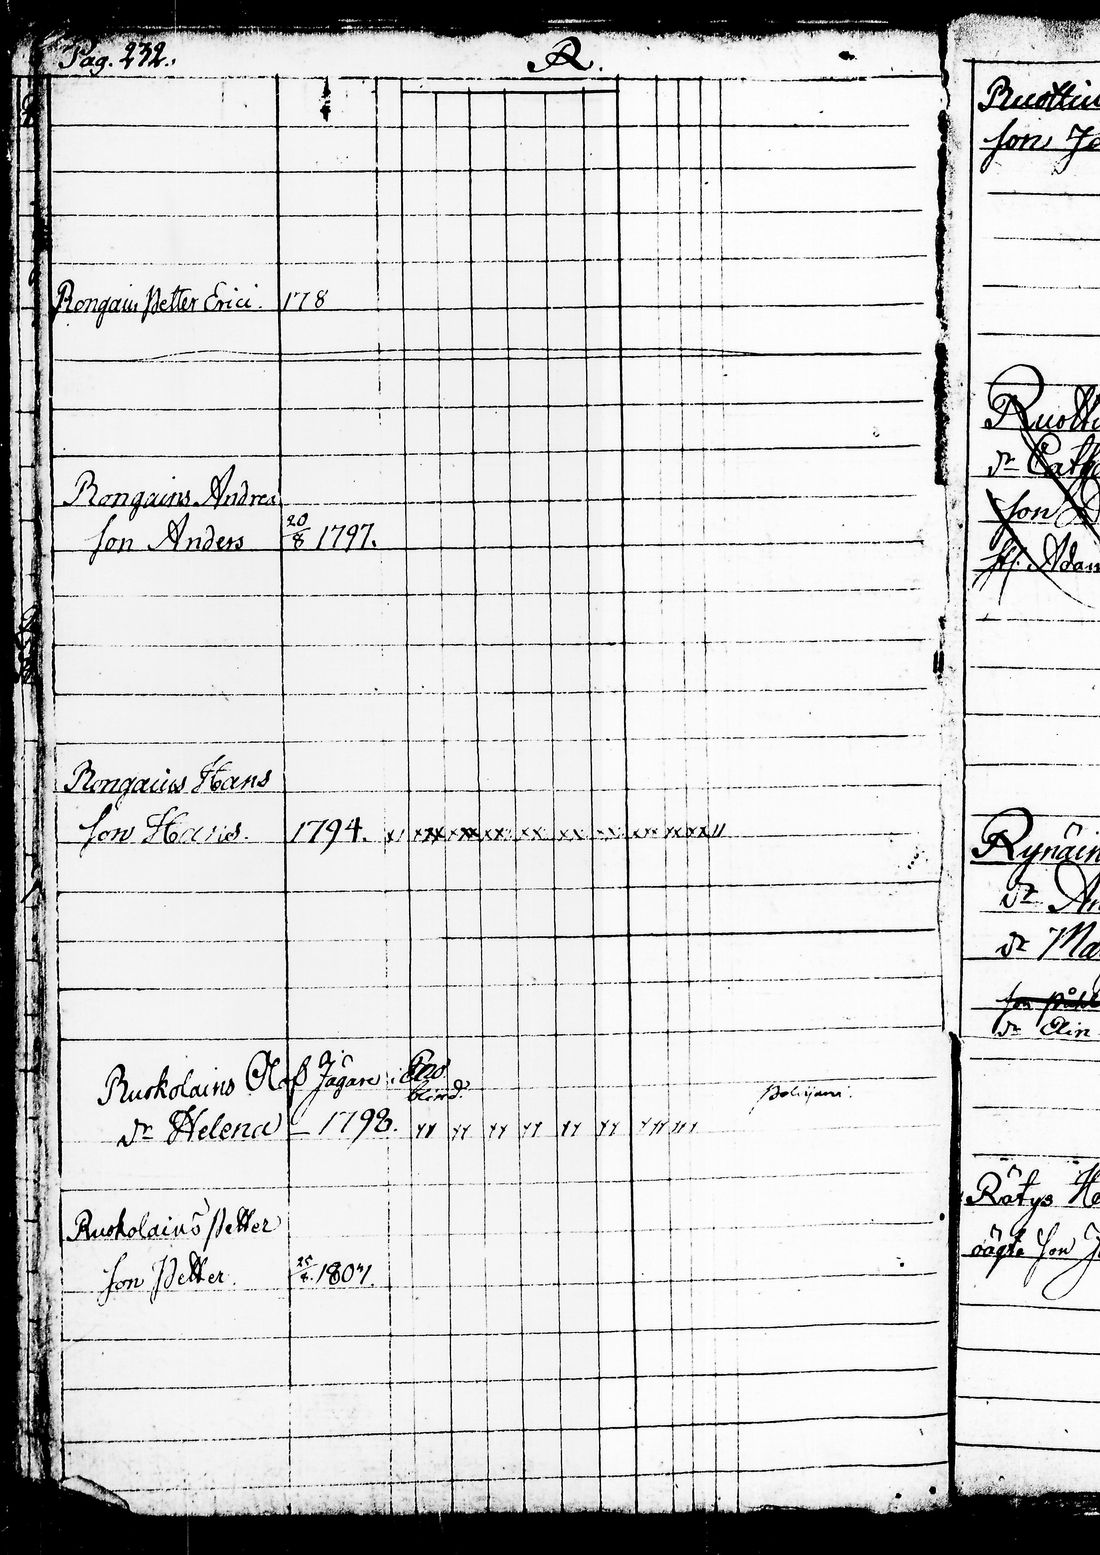 Pag. 232.
R.
Rongain Petter Erici. 178
Rongains Andrea
son Anders 20/8 1797.
Rongains Hans
son Hans. 1794.
Ruokolains Olof Jägare. Eno
blind.
dr Helena 1798.
Ruokolains Petter
son Petter. 25/8. 1807.
Ruotti
son Jo
Ruotti
dr Cath
son
Adam
Rynäin
dr An
dr Ma
son Påhl
dr Elin
Rätys He
oägte son J